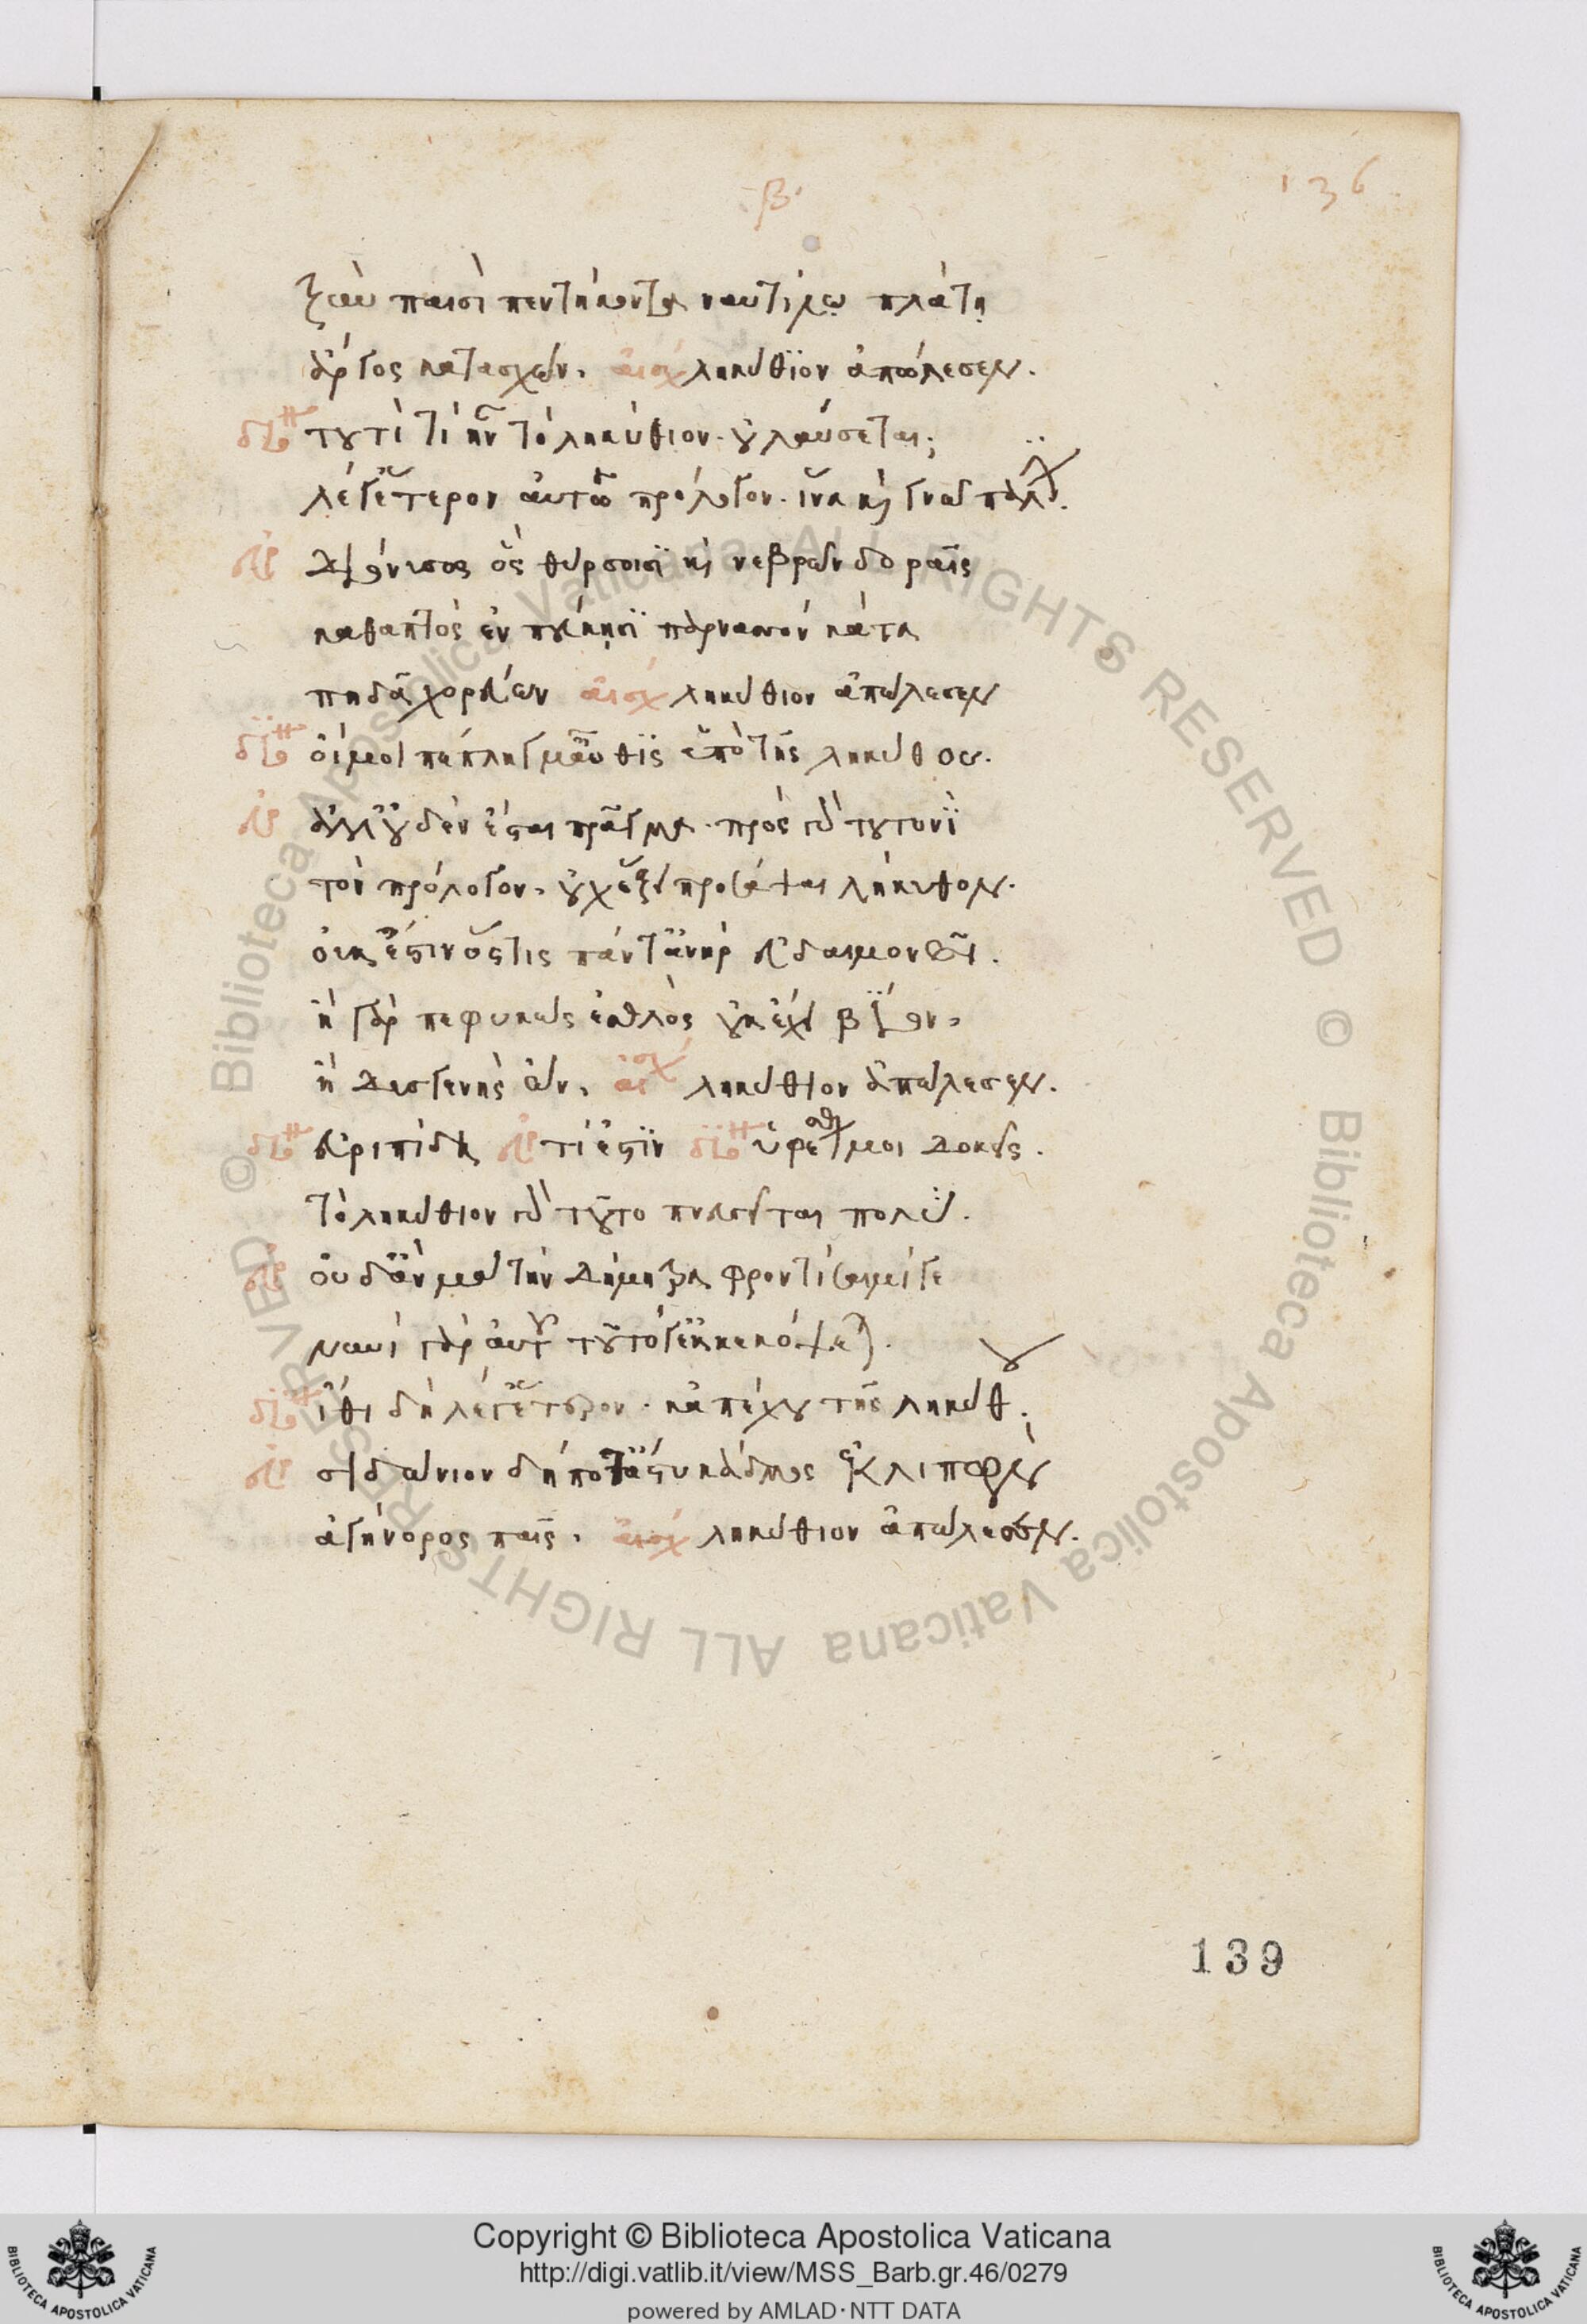 β
136
ξὺν παισὶ πεντήκοντα ναυτίλω πλάτη
ἄργος κατασχών. αἰσχ ληκύθϊον ἀπώλεσεν.
διο τουτὶ τί ἦν τὸ ληκύθιον. οὐ κλαύσεται;
λέγ' ἕτερον αὐτῶ πρόλογον. ἵνα καὶ γνῶ πάλιν.
ευρ Διόνυσος ὃς θύρσοισϊ καὶ νεβρῶν δοραῖς
καθαπτὸς ἐν πεύκησϊ παρνασὸν κάτα
πηδᾶ χορεύων αἰσχ ληκύθιον ἀπώλεσεν
διο οἴμοι πεπλήγμεθ' αὖθϊς ὑπὸ τῆς ληκύθου.
ευρ ἀλλ' οὐδὲν ἔσται πρᾶγμα. πρὸς γὰρ τουτονῒ
τὸν πρόλογον. οὐχ ἕξει προσάψαι λήκυθον.
οὐκ ἔστιν ὅστις πάντ' ἀνὴρ εὐδαιμονεῖ.
ἢ γὰρ πεφυκὼς ἐσθλὸς οὐκ ἔχει βίον,
ἢ δυσγενὴς ὤν. αἰσχ ληκύθιον ἀπώλεσεν.
διο εὐριπίδη ευρ τί ἐστϊν διο ὑφέσθαι μοι δοκεῖς.
τὸ ληκύθιον γὰρ τοῦτο πνευσεῖται πολύ.
ευρ οὐδ' ἂν μὰ τὴν δήμητρα φροντίσαιμί γε
νυνὶ γὰρ αὐτοῦ τοῦτό γ' ἐκκεκόψεται.
διο ἴθι δὴ λέγ' ἕτερον. κἀπέχου τῆς ληκύθου.
ευρ σιδώνιον δήποτ' ἄστυ κάδμος ἐκλιπὼν
ἀγήνορος παῖς. αἰσχ ληκύθιον ἀπώλεσεν.
139
© Biblioteca Apostolica Vaticana ALL RIGHTS RESERVED © Biblioteca Apostolica Vaticana ALL RIGHTS RESERVED
Copyright © Biblioteca Apostolica Vaticana
http://digi.vatlib.it/view/MSS_Barb.gr.46/0279
powered by AMLAD·NTT DATA
BIBLIOTECA APOSTOLICA VATICANA
BIBLIOTECA APOSTOLICA VATICANA